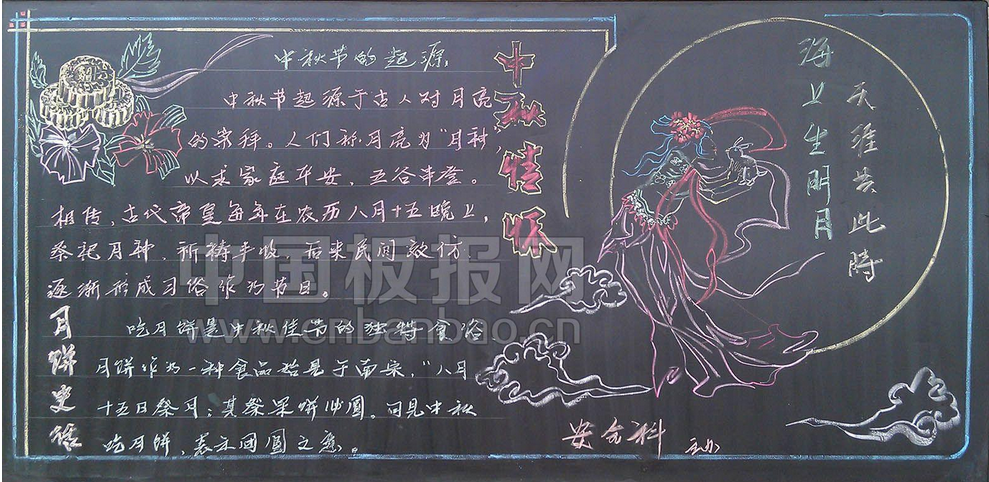 中秋节的起源
中秋节起源于古人对月亮
的崇拜。人们称月亮为"月神",
以求家庭平安、五谷丰登。
相传,古代帝皇每年在农历八月十五晚上,
祭祀月神,祈祷丰收,后来民间效仿
逐渐形成习俗作为节日。
月饼史话
吃月饼是中秋佳节的独特食俗
月饼作为一种食品始见于南宋,"八月
十五日祭月:其祭果饼必圆,可见中秋
吃月饼,表示团圆之意。
中秋情怀
海上生明月
天涯共此時
安全科 主办
中国板报网
www.cnbanbao.cn